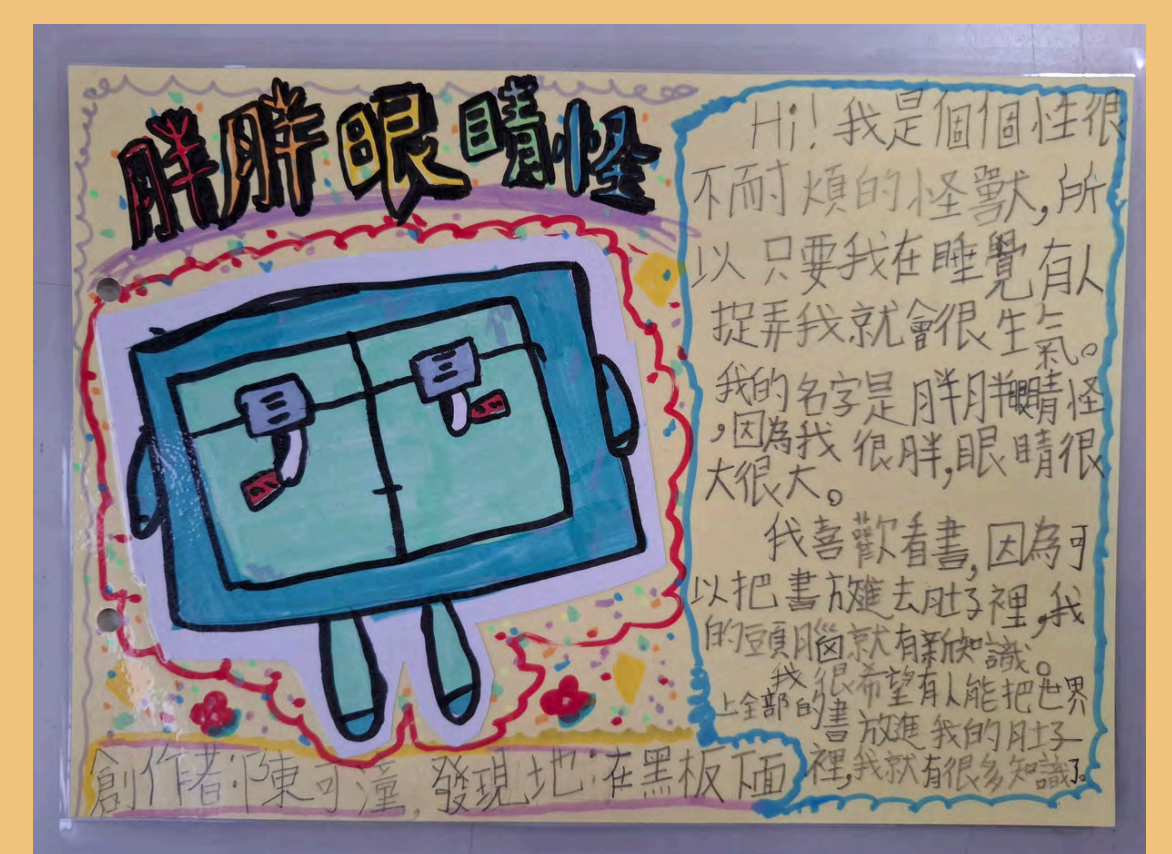 胖胖眼睛怪
Hi！我是個個性很
不耐煩的怪獸，所
以只要我在睡覺有人
捉弄我就會很生氣。
我的名字是胖胖眼睛怪
，因為我很胖，眼睛很
大很大。
我喜歡看書，因為可
以把書放進去肚子裡，我
的頭腦就有新知識。
我很希望有人能把世界
上全部的書放進我的肚子
裡，我就有很多知識了。
創作者：陳可潼，發現地：在黑板下面